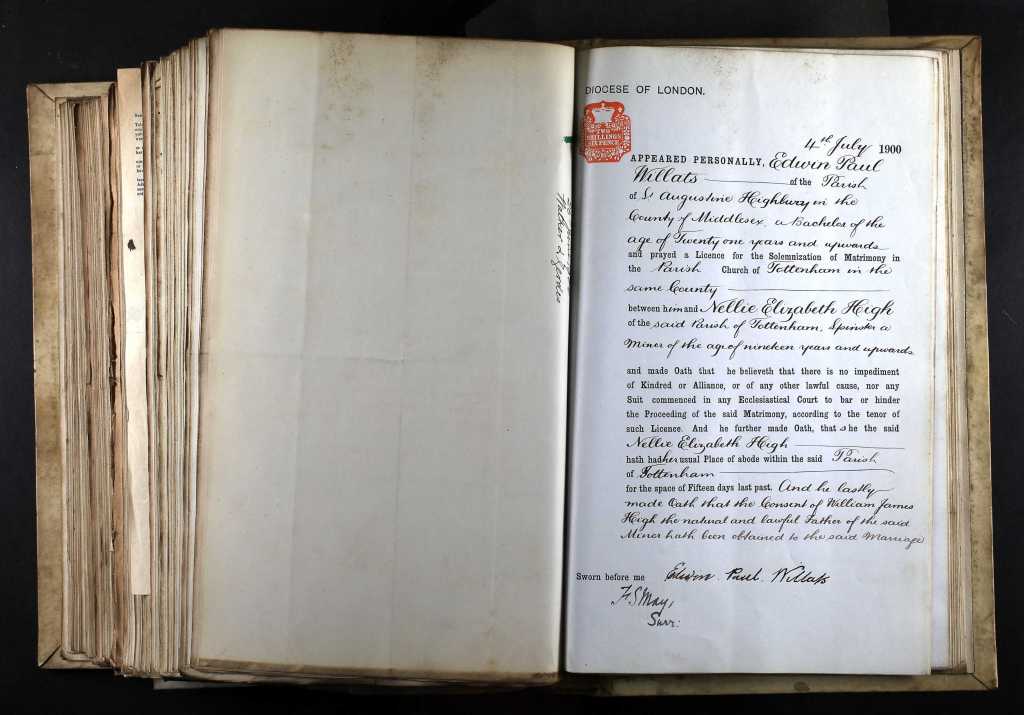 DIOCESE OF LONDON.
TWO
SHILLINGS
SIX PENCE
4th July 1900
APPEARED PERSONALLY, Edwin Paul
Willats of the Parish
of St Augustine Highbury in the
County of Middlesex, a Bachelor of the
age of Twenty one years and upwards
and prayed a Licence for the Solemnization of Matrimony in
the Parish Church of Tottenham in the
same County
between him and Nellie Elizabeth High
of the said Parish of Tottenham, Spinster a
Minor of the age of nineteen years and upwards
and made Oath that he believeth that there is no impediment
of Kindred or Alliance, or of any other lawful cause, nor any
Suit commenced in any Ecclesiastical Court to bar or hinder
the Proceeding of the said Matrimony, according to the tenor of
such Licence. And he further made Oath, that she the said
Nellie Elizabeth High
hath had her usual Place of abode within the said Parish
of Tottenham
for the space of Fifteen days last past. And he lastly
made Oath that the Consent of William James
High the natural and lawful Father of the said
Minor hath been obtained to the said Marriage
Edwin Paul Willats
Sworn before me
F S May,
Surr: